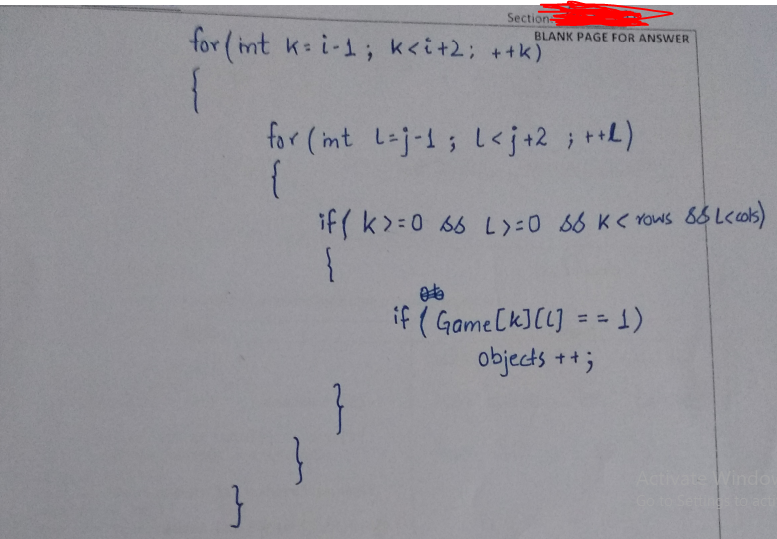 Section-
BLANK PAGE FOR ANSWER
for(int k=i-1; k<i+2; ++k)
{
for(int L=j-1; L<j+2; ++L)
{
if( k>=0 && L>=0 && K< rows && L<cols)
{
if( Game[k][L] == 1)
objects ++;
}
}
}
Activate Windo
Go to Settings to acti